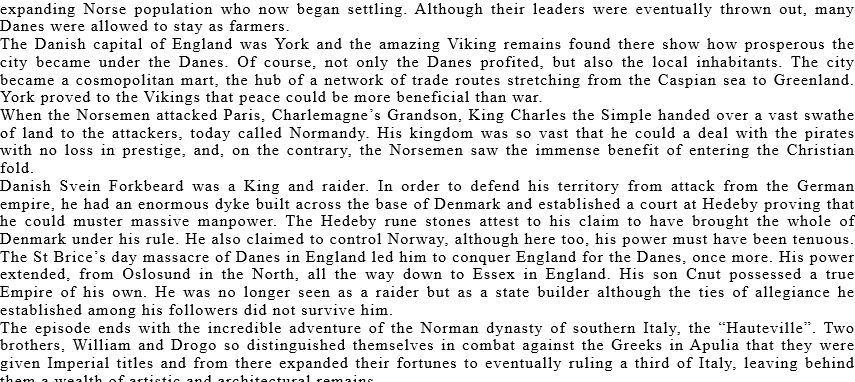 expanding Norse population who now began settling. Although their leaders were eventually thrown out, many
Danes were allowed to stay as farmers.
The Danish capital of England was York and the amazing Viking remains found there show how prosperous the
city became under the Danes. Of course, not only the Danes profited, but also the local inhabitants. The city
became a cosmopolitan mart, the hub of a network of trade routes stretching from the Caspian sea to Greenland.
York proved to the Vikings that peace could be more beneficial than war.
When the Norsemen attacked Paris, Charlemagne’s Grandson, King Charles the Simple handed over a vast swathe
of land to the attackers, today called Normandy. His kingdom was so vast that he could a deal with the pirates
with no loss in prestige, and, on the contrary, the Norsemen saw the immense benefit of entering the Christian
fold.
Danish Svein Forkbeard was a King and raider. In order to defend his territory from attack from the German
empire, he had an enormous dyke built across the base of Denmark and established a court at Hedeby proving that
he could muster massive manpower. The Hedeby rune stones attest to his claim to have brought the whole of
Denmark under his rule. He also claimed to control Norway, although here too, his power must have been tenuous.
The St Brice’s day massacre of Danes in England led him to conquer England for the Danes, once more. His power
extended, from Oslosund in the North, all the way down to Essex in England. His son Cnut possessed a true
Empire of his own. He was no longer seen as a raider but as a state builder although the ties of allegiance he
established among his followers did not survive him.
The episode ends with the incredible adventure of the Norman dynasty of southern Italy, the “Hauteville”. Two
brothers, William and Drogo so distinguished themselves in combat against the Greeks in Apulia that they were
given Imperial titles and from there expanded their fortunes to eventually ruling a third of Italy, leaving behind
them a wealth of artistic and architectural remains.